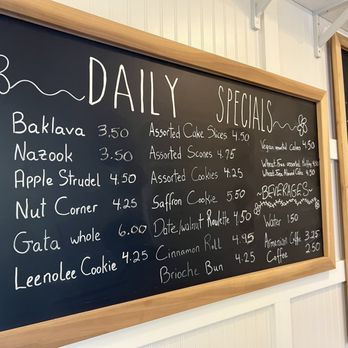 DAILY SPECIALS
Baklava 3.50
Nazook 3.50
Apple Strudel 4.50
Nut Corner 4.25
Gata whole 6.00
Leenolee Cookie 4.25
Assorted Cake Slices 4.50
Assorted Scones 4.75
Assorted Cookies 4.25
Saffron Cookie 5.50
Date/walnut Roulette 4.50
Cinnamon Roll 4.95
Brioche Bun 4.25
Vegan assorted cakes 4.50
Wheat-Free assorted
Wheat-Free Almond Cake
BEVERAGES
Water 1.50
Armenian Coffee 3.25
Coffee 2.50